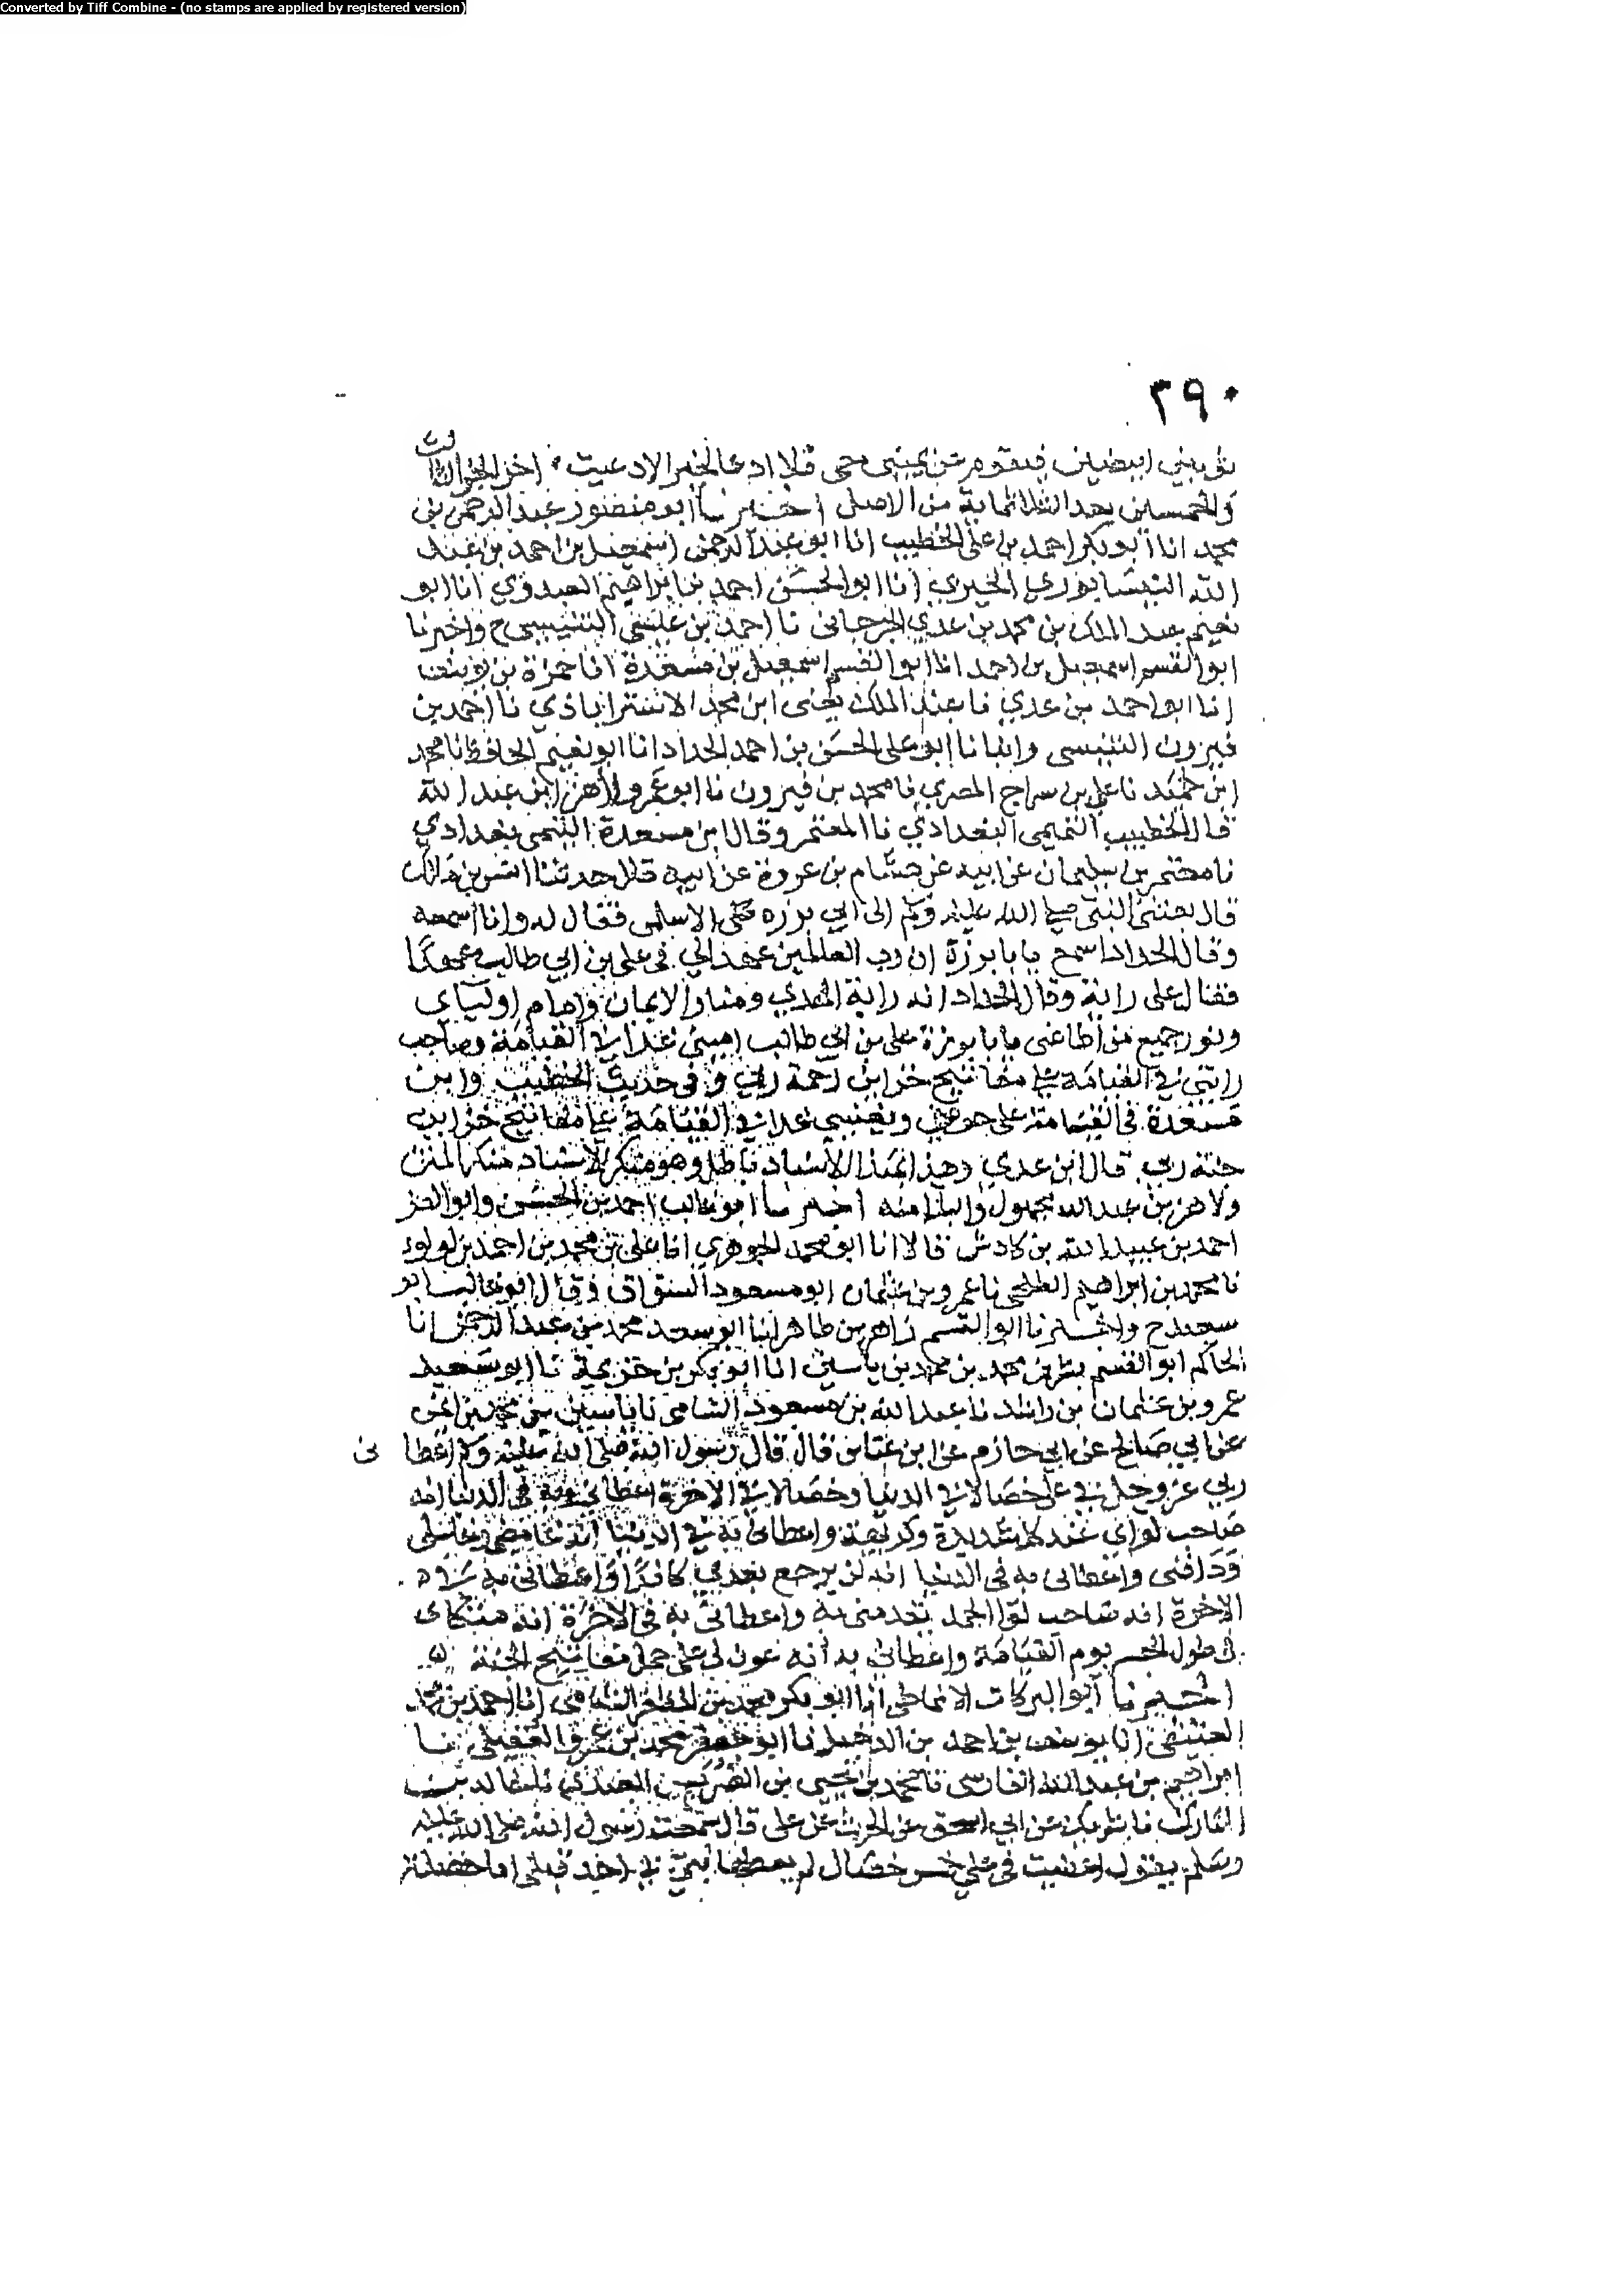 Converted by Tiff Combine - (no stamps are applied by registered version)
٣٩٠
ثوبين ابيضين فيقوم عن يميني حتى فلا ادعا لخير الا دعيت اخر الجزو الثالث
والخمسين بعد الثلاثماية من الاصل اخبرنا ابو منصور عبد الرحمن بن
محمد انا ابو بكر احمد بن علي الخطيب انا ابو عبد الرحمن اسمعيل بن احمد بن عبد
الله النيسابوري الحيري انا ابو الحسن احمد بن ابراهيم العبدوي انا ابو
نعيم عبد الملك بن محمد بن عدي الجرجاني نا احمد بن عيسى التنيسي ح واخبرنا
ابو القسم اسمعيل بن احمد انا ابو القسم اسمعيل بن مسعدة انا حمزة بن يوسف
انا ابو احمد بن عدي نا عبد الملك يعني ابن محمد الاستراباذي نا احمد بن
فيزون التنيسي وانبانا ابو علي الحسن بن احمد الحداد انا ابو نعيم الحافظ نا محمد
ابن حميد نا علي بن سراج المصري نا محمد بن فيزون نا ابو عمرو لاهز بن عبد الله
قال الخطيب التميمي البغدادي نا المعتمر وقال ابن مسعدة التيمي بغدادي
نا معتمر بن سليمان عن ابيه عن هشام بن عروة عن ابيه قال حدثنا انس بن مالك
قال بعثني النبي صلى الله عليه وسلم الى ابي برزه الاسلمى فقال له وانا اسمعه
وقال الحداد اسمع يابا برزة ان رب العالمين عهد الي في علي بن ابي طالب عهدا
فقال علي راية وقال الحداد انه راية الهدي ومنار الايمان وامام اوليأى
ونور جميع من اطاعني يابا برزة علي بن ابي طالب اميني غدا في القيامة وصاحب
رايتي في القيامة على مفاتيح خزاين رحمة ربي و في حديث الخطيب وابن
مسعدة في القيامة على حوضي ويعينني غدا في القيامة على مفاتيح خزاين
جنة ربي قال ابن عدي وهذا بهذا الاسناد باطل وهو منكر الاسناد منكر المتن
ولاهز بن عبد الله مجهول والبلا منه اخبرنا ابو غالب احمد بن الحسن وابو العز
احمد بن عبيد الله بن كادش قالا انا ابو محمد الجوهري انا علي بن محمد بن احمد بن لولو
نا محمد بن ابراهيم الطلحي نا عمرو بن عثمان ابو مسعود السواق وقال ابو غالب ابو
سعيد ح واخبرنا ابو القسم زاهر بن طاهر انا ابو سعد محمد بن عبد الرحمن انا
الحاكم ابو القسم بشر بن محمد بن محمد بن ياسين انا ابو بكر بن خزيمة نا ابو سعيد
عمرو بن عثمان بن راشد نا عبد الله بن مسعود الشامي نا ياسين بن محمد بن ايمن
عن ابي صالح عن ابي حازم عن ابن عباس قال قال رسول الله صلى الله عليه وسلم اعطا نى
ربي عز وجل في علي خصالا في الدنيا وخصالا في الاخرة اعطاني به في الدنيا انه
صاحب لواى عند كل شديدة وكريهة واعطاني به في الدنيا انه غامضى وغاسلى
ودافني واعطاني به في الدنيا انه لن يرجع بعدي كافرا واعطاني به في
الاخرة انه صاحب لوا الحمد يقدمني به واعطاني به في الاخرة انه متكاى
في طول الحشر يوم القيامة واعطاني به انه عون لى على حمل مفاتيح الجنة
اخبرنا ابو البركات الانماطي انا ابو بكر محمد بن المظفر الشامى انا احمد بن محمد
العتيقي انا يوسف بن احمد بن الدخيل نا ابو جعفر محمد بن عمرو العقيلي نا
ابراهيم بن عبد الله الفارسي نا محمد بن يحيى بن الضريس العبدي نا خالد بن
المبارك نا شريك عن ابي اسحق عن الحرث عن علي قال سمعت رسول الله صلى الله عليه
وسلم يقول اعطيت في علي خمس خصال لم يعطها نبي في احد قبلي اما خصلة